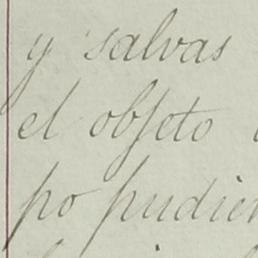 y salvas
el objeto
po pudie